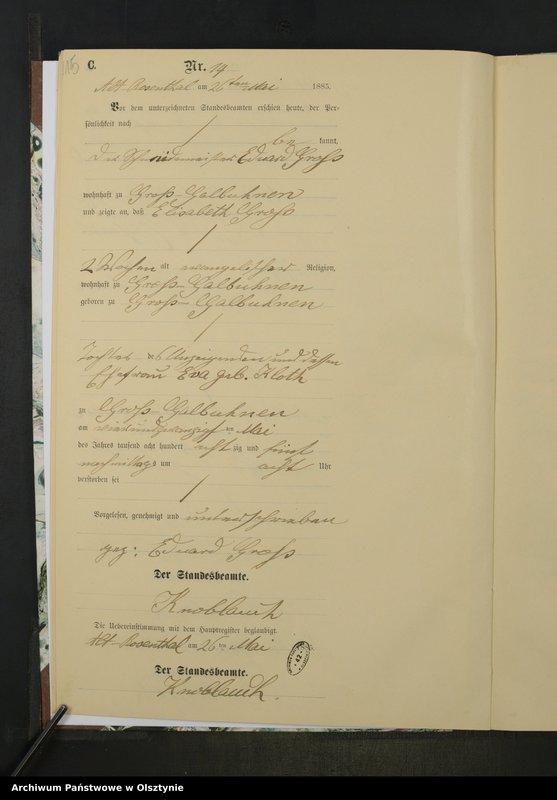 C. Nr. 19
Alt-Rosenthal am 26ten Mai 1885.
Vor dem unterzeichneten Standesbeamten erschien heute, der Per-
sönlichkeit nach
be kannt,
der Schneidermeister Eduard Groß
wohnhaft zu Groß-Galbuhnen
und zeigte an, daß Elisabeth Groß
2 Wochen alt evangelischer Religion,
wohnhaft zu Groß-Galbuhnen
geboren zu Groß-Galbuhnen
Tochter des Anzeigenden und dessen
Ehefrau Eva geb. Kloth
zu Groß-Galbuhnen
am vierundzwanzigsten Mai
des Jahres tausend acht hundert achtzig und fünf
nachmittags um acht Uhr
verstorben sei
Vorgelesen, genehmigt und unterschrieben
gez: Eduard Groß
Der Standesbeamte.
Knoblauch
Die Uebereinstimmung mit dem Hauptregister beglaubigt.
Alt-Rosenthal am 26ten Mai
Der Standesbeamte.
Knoblauch.
Archiwum Państwowe w Olsztynie